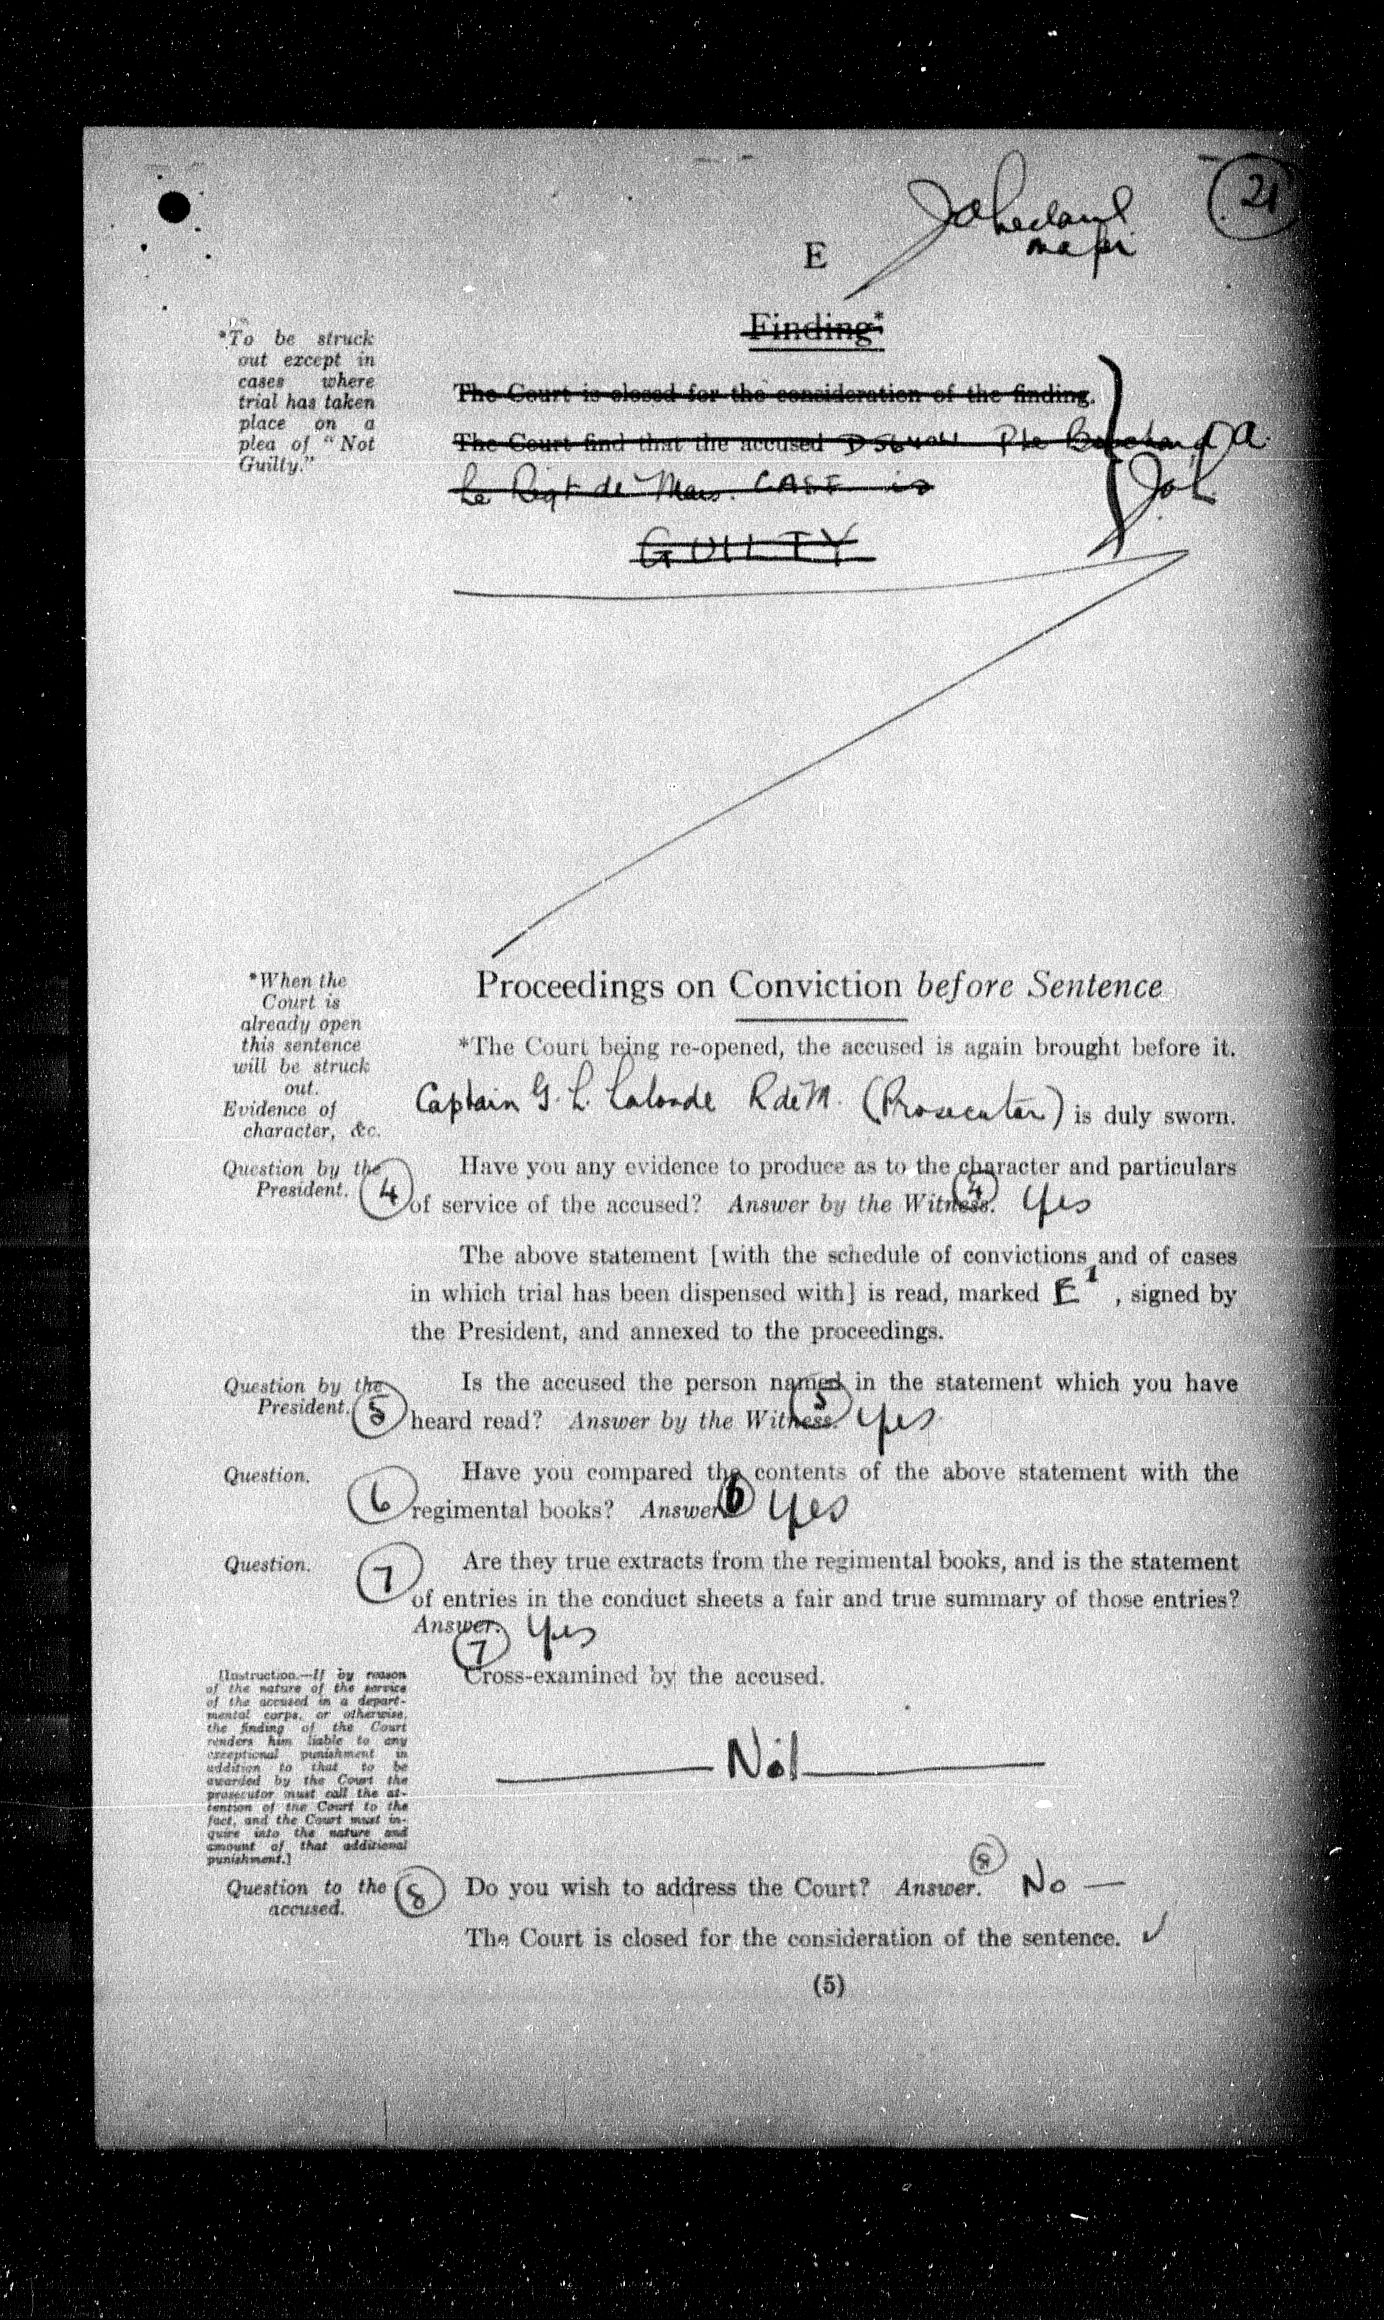 21
E
Finding*
*To be struck
out except in
cases where
trial has taken
place on a
plea of "Not
Guilty."
The Court is closed for the consideration of the finding.
The Court find that the accused Pte
Le Regt de Mais. CASF is
GUILTY
Proceedings on Conviction before Sentence
*When the
Court is
already open
this sentence
will be struck
out.
*The Court being re-opened, the accused is again brought before it.
Evidence of
character, &c.
Captain G. L. Lalonde R de M. (Prosecutor) is duly sworn.
Question by the
President.
4
Have you any evidence to produce as to the character and particulars
of service of the accused? Answer by the Witness. 4 Yes
The above statement [with the schedule of convictions and of cases
in which trial has been dispensed with] is read, marked E1, signed by
the President, and annexed to the proceedings.
Question by the
President.
5
Is the accused the person named in the statement which you have
heard read? Answer by the Witness. 5 Yes
Question.
6
Have you compared the contents of the above statement with the
regimental books? Answer. 6 Yes
Question.
7
Are they true extracts from the regimental books, and is the statement
of entries in the conduct sheets a fair and true summary of those entries?
Answer. 7 Yes
[Instruction.—If by reason
of the nature of the service
of the accused in a depart-
mental corps, or otherwise,
the finding of the Court
renders him liable to any
exceptional punishment in
addition to that to be
awarded by the Court the
prosecutor must call the at-
tention of the Court to the
fact, and the Court must in-
quire into the nature and
amount of that additional
punishment.]
Cross-examined by the accused.
Nil
Question to the
accused.
8
Do you wish to address the Court? Answer. 8 No —
The Court is closed for the consideration of the sentence. ✓
(5)